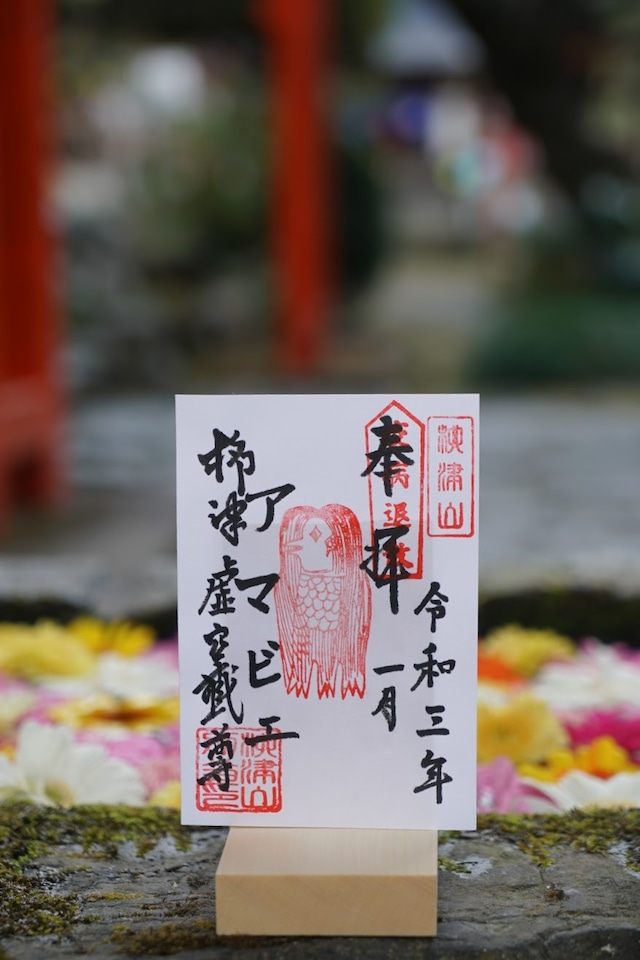 奉拝
令和三年
一月
アマビエ
柳津虚空蔵尊
柳津山
退
柳津山